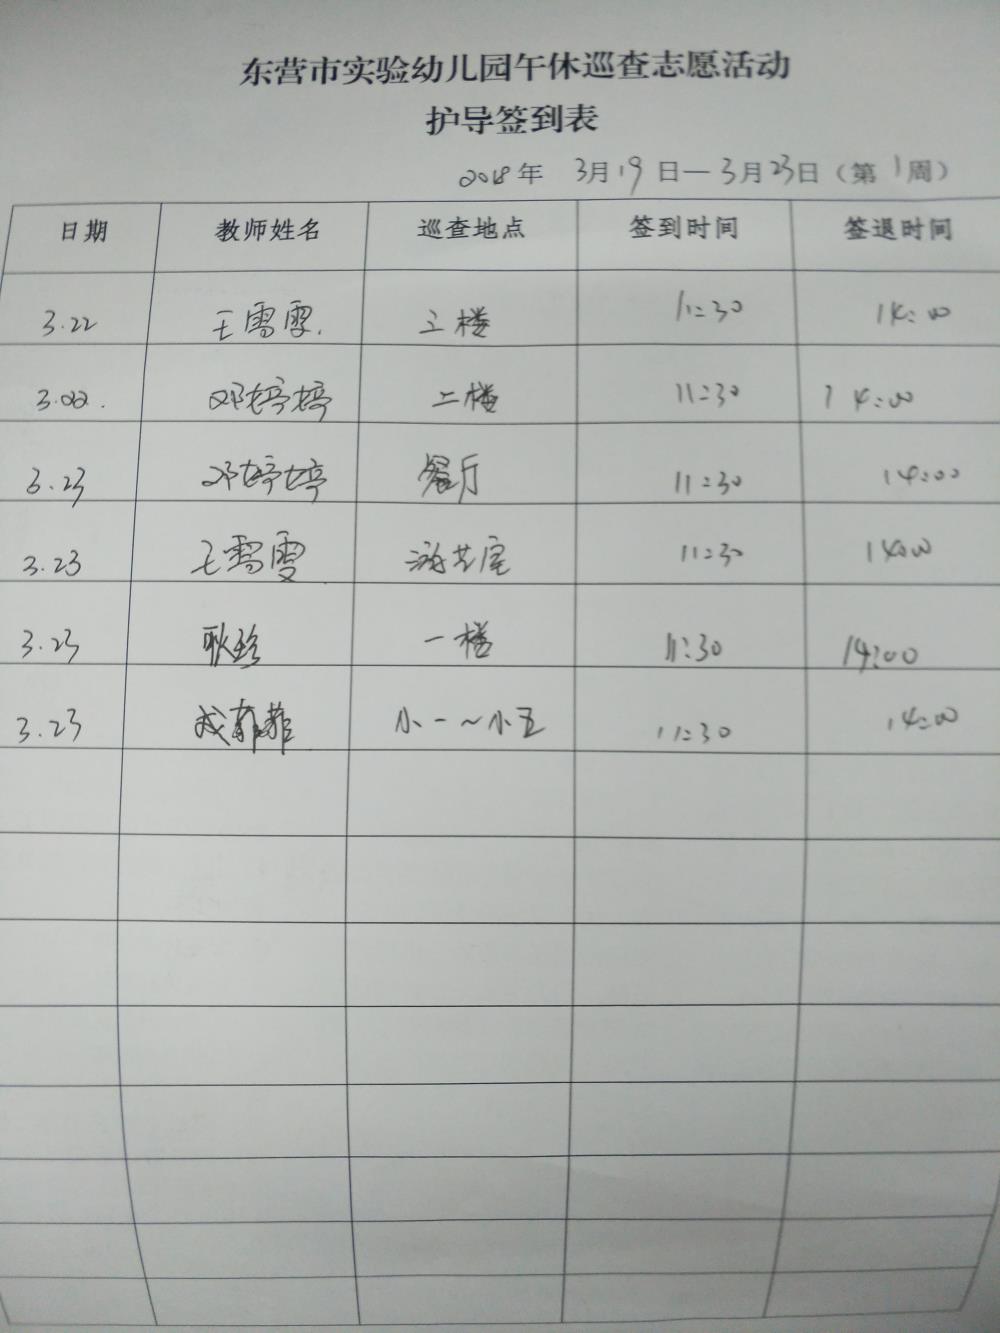 东营市实验幼儿园午休巡查志愿活动
护导签到表
2018年 3月19日—3月23日（第1周）
日期 教师姓名 巡查地点 签到时间 签退时间
3.22 王雪雯. 三楼 11:30 14:00
3.22. 邓婷婷 二楼 11:30 14:00
3.23 邓婷婷 餐厅 11:30 14:00
3.23 王雪雯 游艺室 11:30 14:00
3.23 耿珍 一楼 11:30 14:00
3.23 成菲菲 小一~小五 11:30 14:00